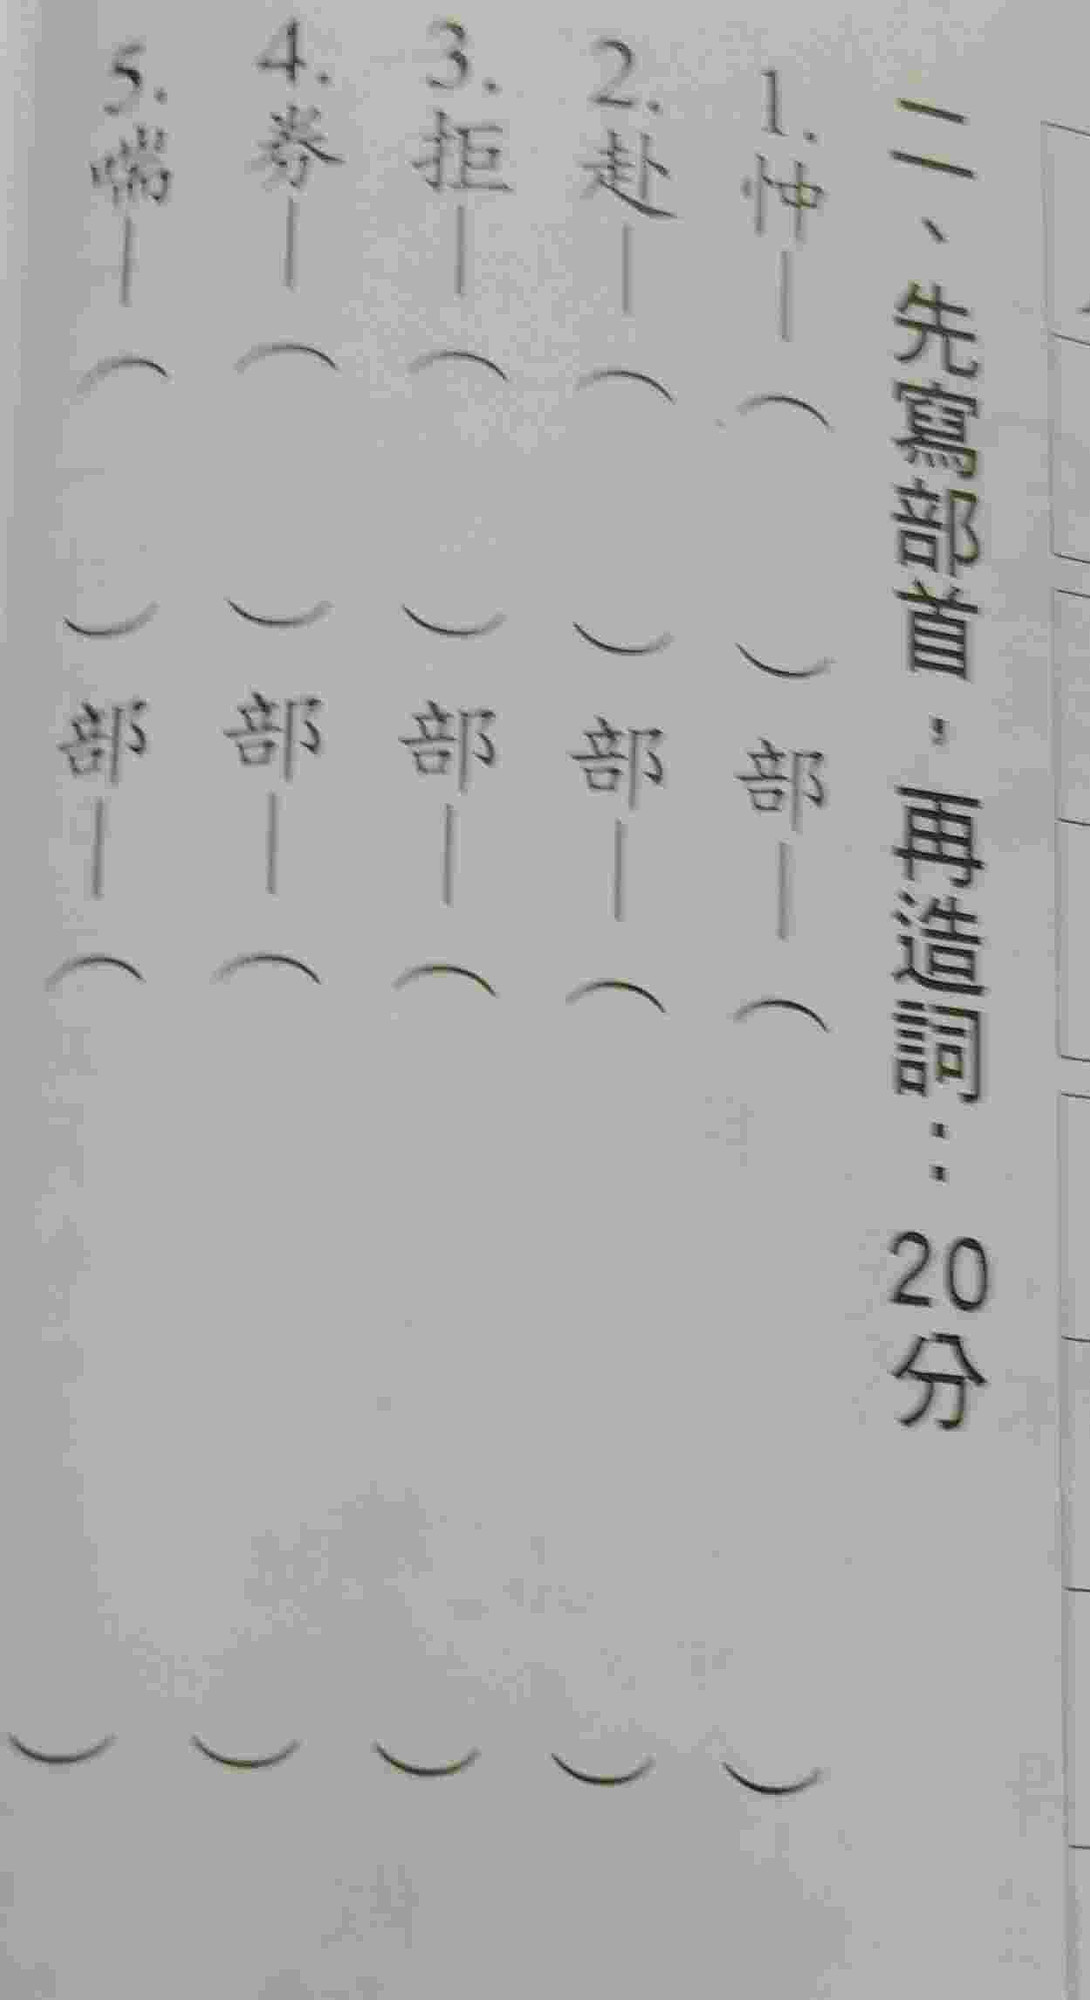 二、先寫部首，再造詞：20分
1.忡—（　）部—（　）
2.赴—（　）部—（　）
3.拒—（　）部—（　）
4.券—（　）部—（　）
5.喘—（　）部—（　）